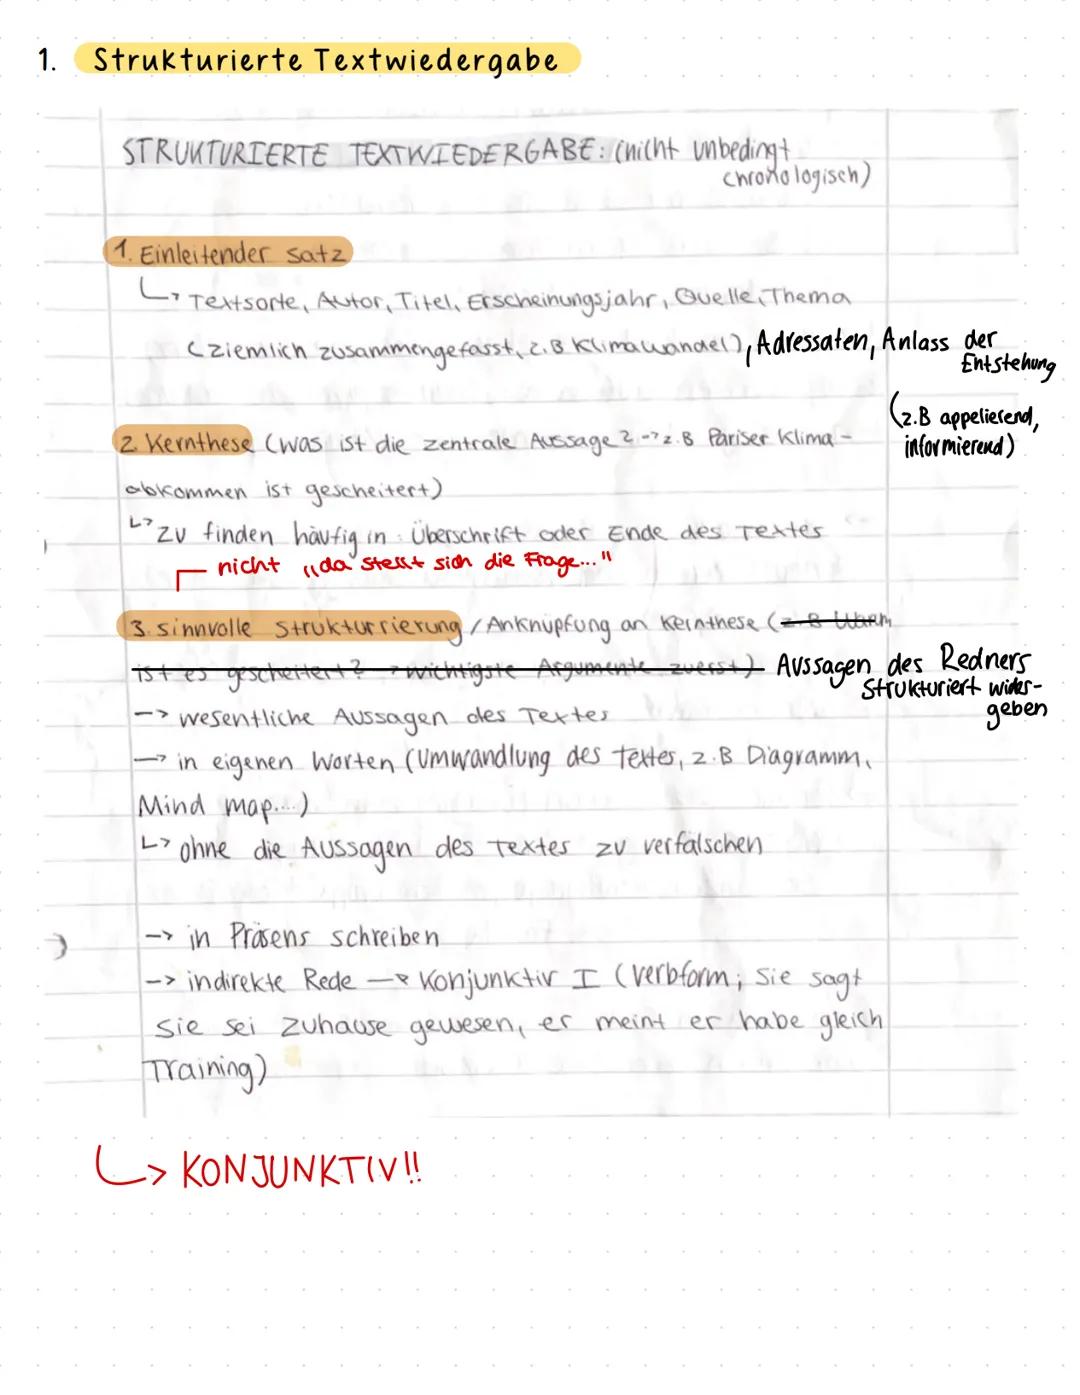 1. Strukturierte Textwiedergabe
STRUKTURIERTE TEXTWIEDERGABE: (nicht unbedingt
chronologisch)
1. Einleitender Satz
↳ Textsorte, Autor, Titel, Erscheinungsjahr, Quelle, Thema
(ziemlich zusammengefasst, z.B Klimawandel), Adressaten, Anlass der
Entstehung
(z.B appelierend,
informierend)
2. Kernthese (was ist die zentrale Aussage? -> z.B Pariser Klima-
abkommen ist gescheitert)
↳ zu finden häufig in Überschrift oder Ende des Textes
nicht „da stellt sich die Frage..."
3. sinnvolle Strukturrierung / Anknüpfung an Kernthese (z.B Warum
ist es gescheitert? -> wichtigste Argumente zuerst) Aussagen des Redners
Strukturiert wider-
geben
-> wesentliche Aussagen des Textes
-> in eigenen Worten (Umwandlung des Textes, z.B Diagramm,
Mind map....)
↳ ohne die Aussagen des Textes zu verfälschen
-> in Präsens schreiben
-> indirekte Rede -> Konjunktiv I (Verbform; Sie sagt
sie sei zuhause gewesen, er meint er habe gleich
Training)
↳ KONJUNKTIV!!